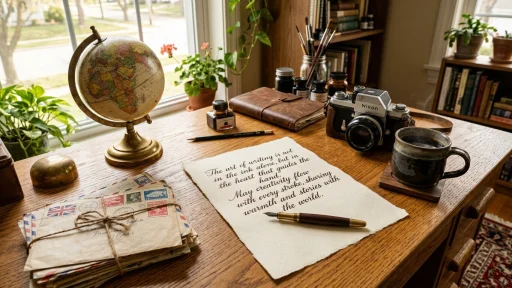 The art of writing is not
in the ink alone, but in
the heart that guides the
hand.
May creativity flow
with every stroke, sharing
warmth and stories with
the world.
Nikon